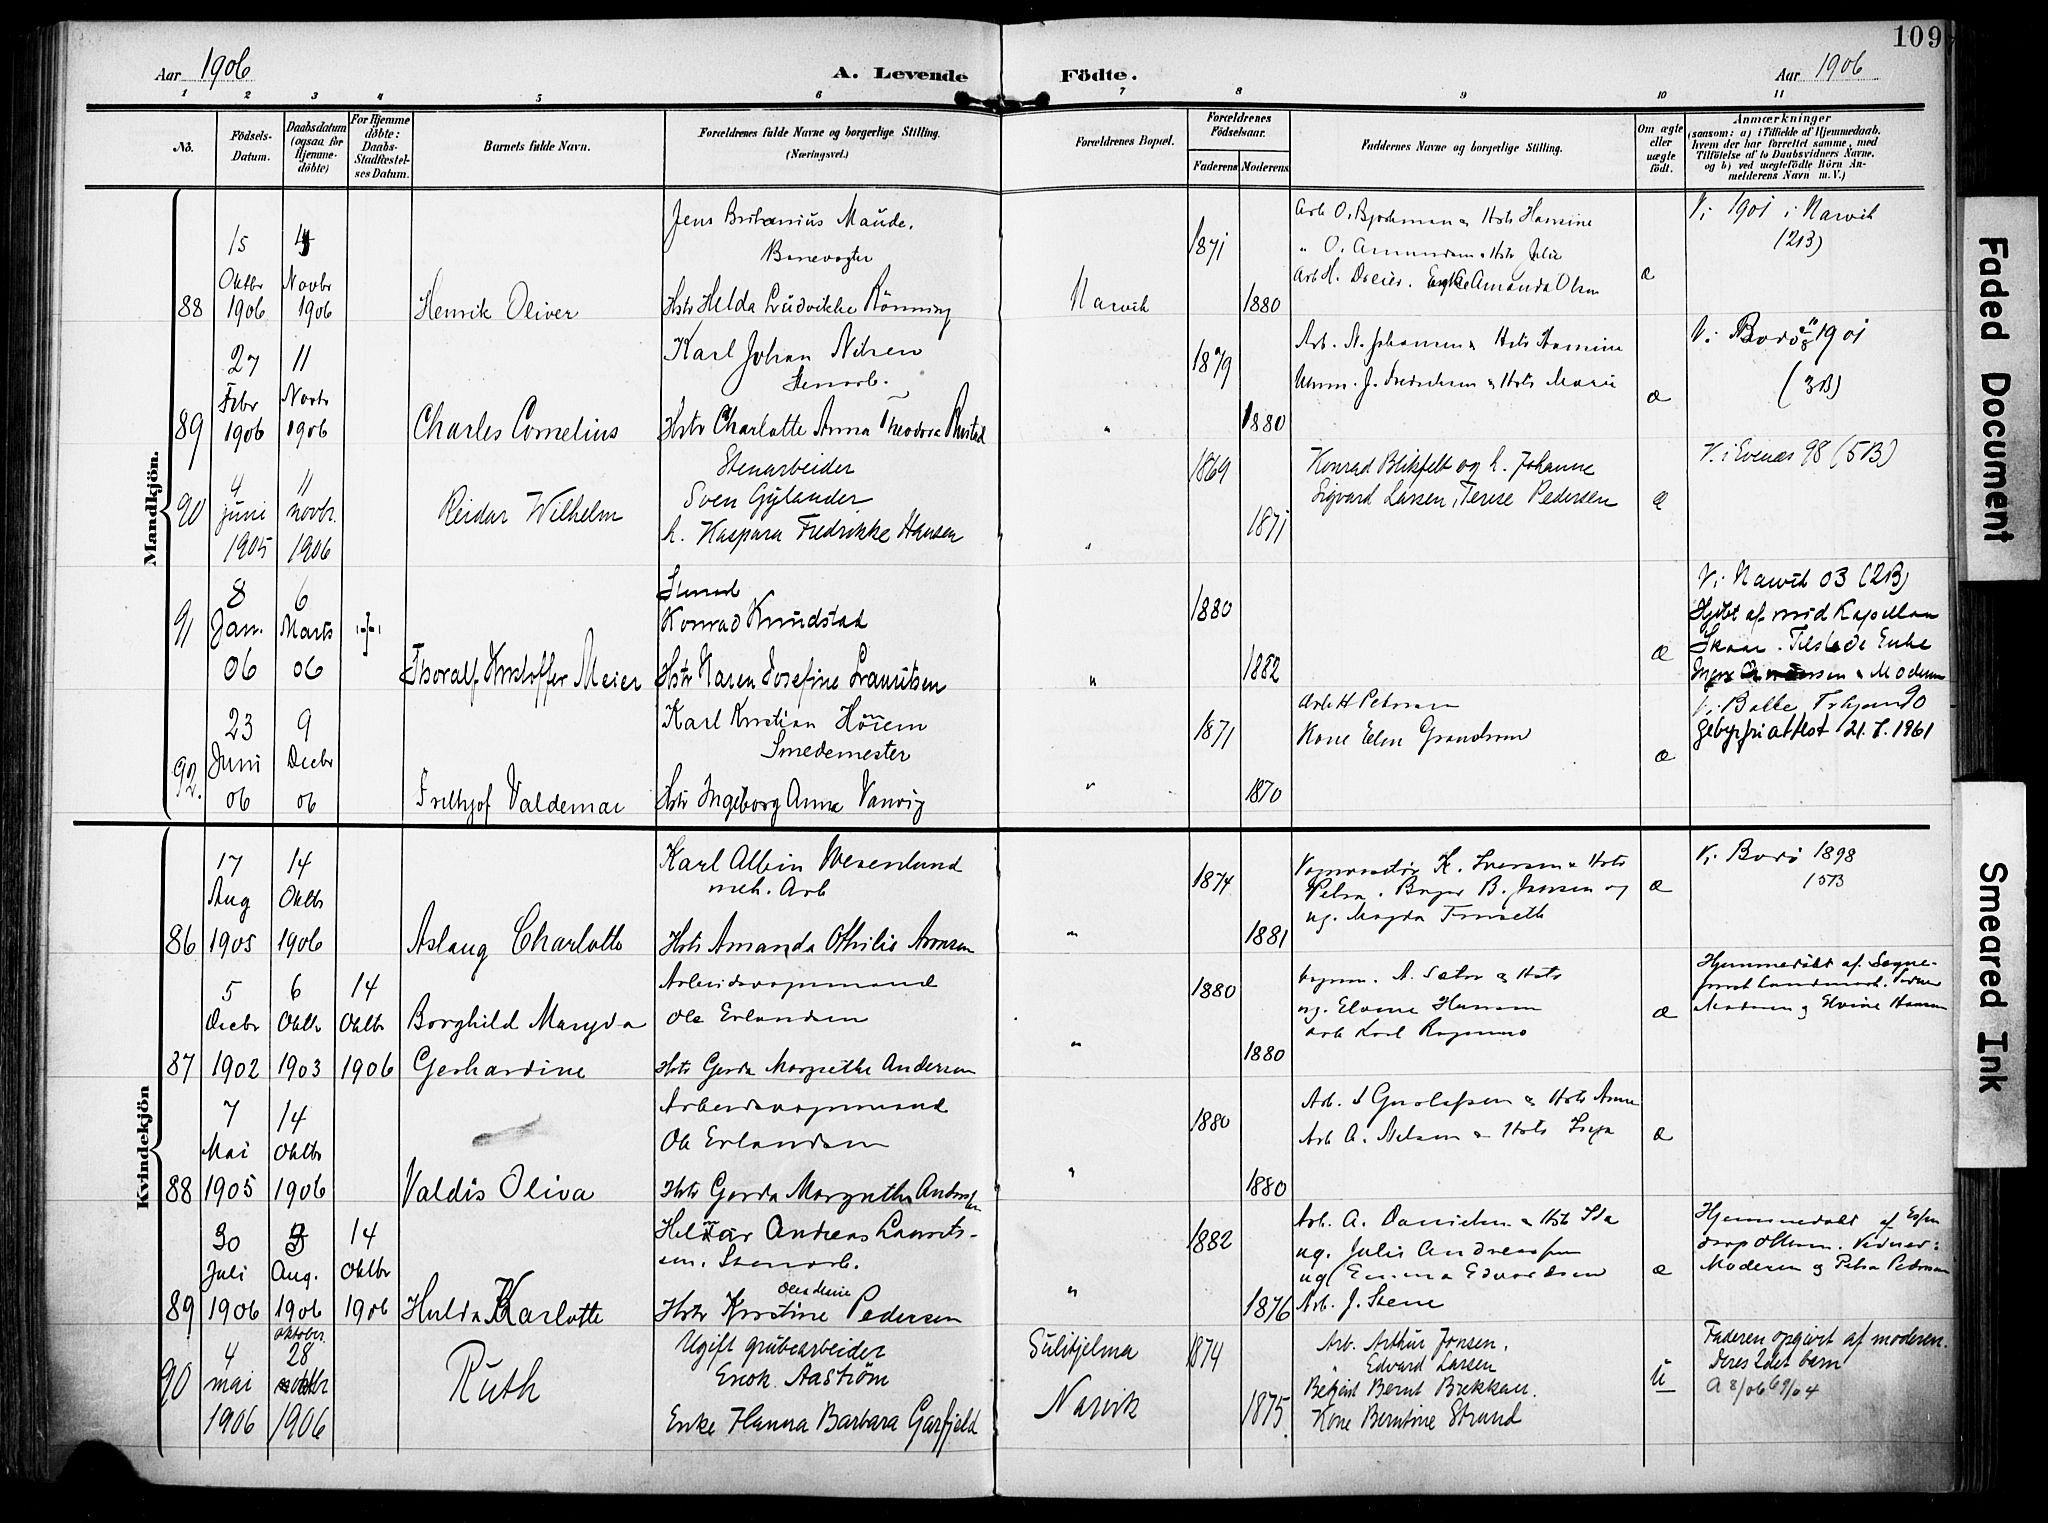 109
Aar 1906
A. Levende Födte.
Aar 1906
1 2 3 4 5 6 7 8 9 10 11
No.
Födsels-Datum.
Daabsdatum (ogsaa for Hjemme-döbte)
For Hjemme döbte: Daabs-Stadfæstel-ses Datum.
Barnets fulde Navn.
Forældrenes fulde Navne og borgerlige Stilling. (Næringsvei.)
Forældrenes Bopæl.
Forældrenes Födselsaar.
Faderens
Moderens
Faddernes Navne og borgerlige Stilling.
Om ægte eller uægte födt.
Anmærkninger
(saasom: a) i Tilfælde af Hjemmedaab,
hvem der har forrettet samme, med
Tilföielse af to Daabsvidners Navne,
og b) ved uegtefödte Börn An-
melderens Navn m. V.)
Mandkjön.
88
15 Oktbr 1906
4 Novbr 1906
Henrik Oliver
Jens Britanius Maude.
Banevogter
Hstr Helda Ludvikke Rönning
Narvik
1871
1880
Arb O. Bjorkman & Hstr Hansine
" O. Amundsen & Hstr Julie
Arb H. Dreier. Enke Amanda Olsen
æ
V. i 1901 i Narvik
(2B)
89
27 Febr 1906
11 Novbr 1906
Charles Cornelius
Karl Johan Nilsen
Stenarb.
Hstr Charlotte Anna Theodora Rustad
"
1879
1880
Arb. A. Johansen & Hstr Hansine
J. Fredriksen & Hstr Marie
æ
V. i Bodö 1901
(3B)
90
4 juni 1905
11 novbr. 1906
Reidar Wilhelm
Stenarbeider
Sven Gylander
h. Kaspara Fredrikke Hansen
"
1869
1871
Konrad Blikfelt og h. Johanne
Sigvard Larsen, Terese Pedersen
æ
V. i Evenæs 98 (5B)
91
8 Jan. 06
6 Marts 06
Thoralf Kristoffer Meier
Stenarb
Konrad Knudstad
Hstr Karen Josefine Lauritsen
"
1880
1882
æ
V. i Narvik 03 (2B)
Hjdbt af mid Kapellan
Skaar. Tilstede Enke
& Moderen
92.
23 Juni 06
9 Decbr 06
Frithjof Valdemar
Karl Kristian Höiem
Smedemester
Hstr Ingeborg Anna Vanvig
"
1871
1870
Arb H Petersen
Kone Elen
æ
V. i Balke 90
Gebyrfri attest 21.7.1961
Kvindekjön
86
17 Aug 1905
14 Oktbr 1906
Aslaug Charlotte
Karl Albin Wesenlund
mek. Arb
Hstr Amanda Othilie Aronsen
"
1874
1881
K. Iversen & Hstr
Petra. B. Jensen og
ug. Magda Trurseth
æ
V. i Bodö 1898
(5B
87
5 Decbr 1902
6 Oktbr 1903
14 Oktbr 1906
Borghild Margda
Gerhardine
Arbeidsvognmand
Ole Erlandsen
Hstr Gerda Margrethe Andersen
"
1880
1880
A. Sater & Hstr
ug. Elvine Hansen
Arb Karl
æ
Hjemmedöbt af Sogne-
prest Landmark.
Moderen og Elvine Hansen
88
7 Mai 1905
14 Oktbr 1906
Valdis Oliva
Arbeidsvognmand
Ole Erlandsen
Hstr Gerda Margrethe Andersen
"
1880
1880
Arb. Gustafsen & Hstr Anna
Arb A. Nelsen & Hstr
æ
89
30 Juli 1906
3 Aug. 1906
14 Oktbr 1906
Hulda Karlotte
Helmar Andreas Laurits-
en. Stenarb.
Hstr Kristine Oleadine Pedersen
"
1882
1876
Arb. A. Danielsen & Hstr Ida
ug. Julie Andreassen
ug Emma Edvardsen
Arb. J. Stene
æ
Hjemmedöbt af
Moderen og Petra Pedersen
90
4 mai 1906
oktober
28
1906
Ruth
Ugift grubearbeider
Enok Aaström
Enke Hanna Barbara Garfjeld
Sulitjelma
Narvik
1874
1875
Arb. Arthur Jonsen.
" Edvard Larsen
Betjent Bernt Brekkan.
Kone Berntine Strand
u
Faderen opgivet af moderen.
Deres 2det barn
A 8/06 69/04
Faded Document
Smeared Ink